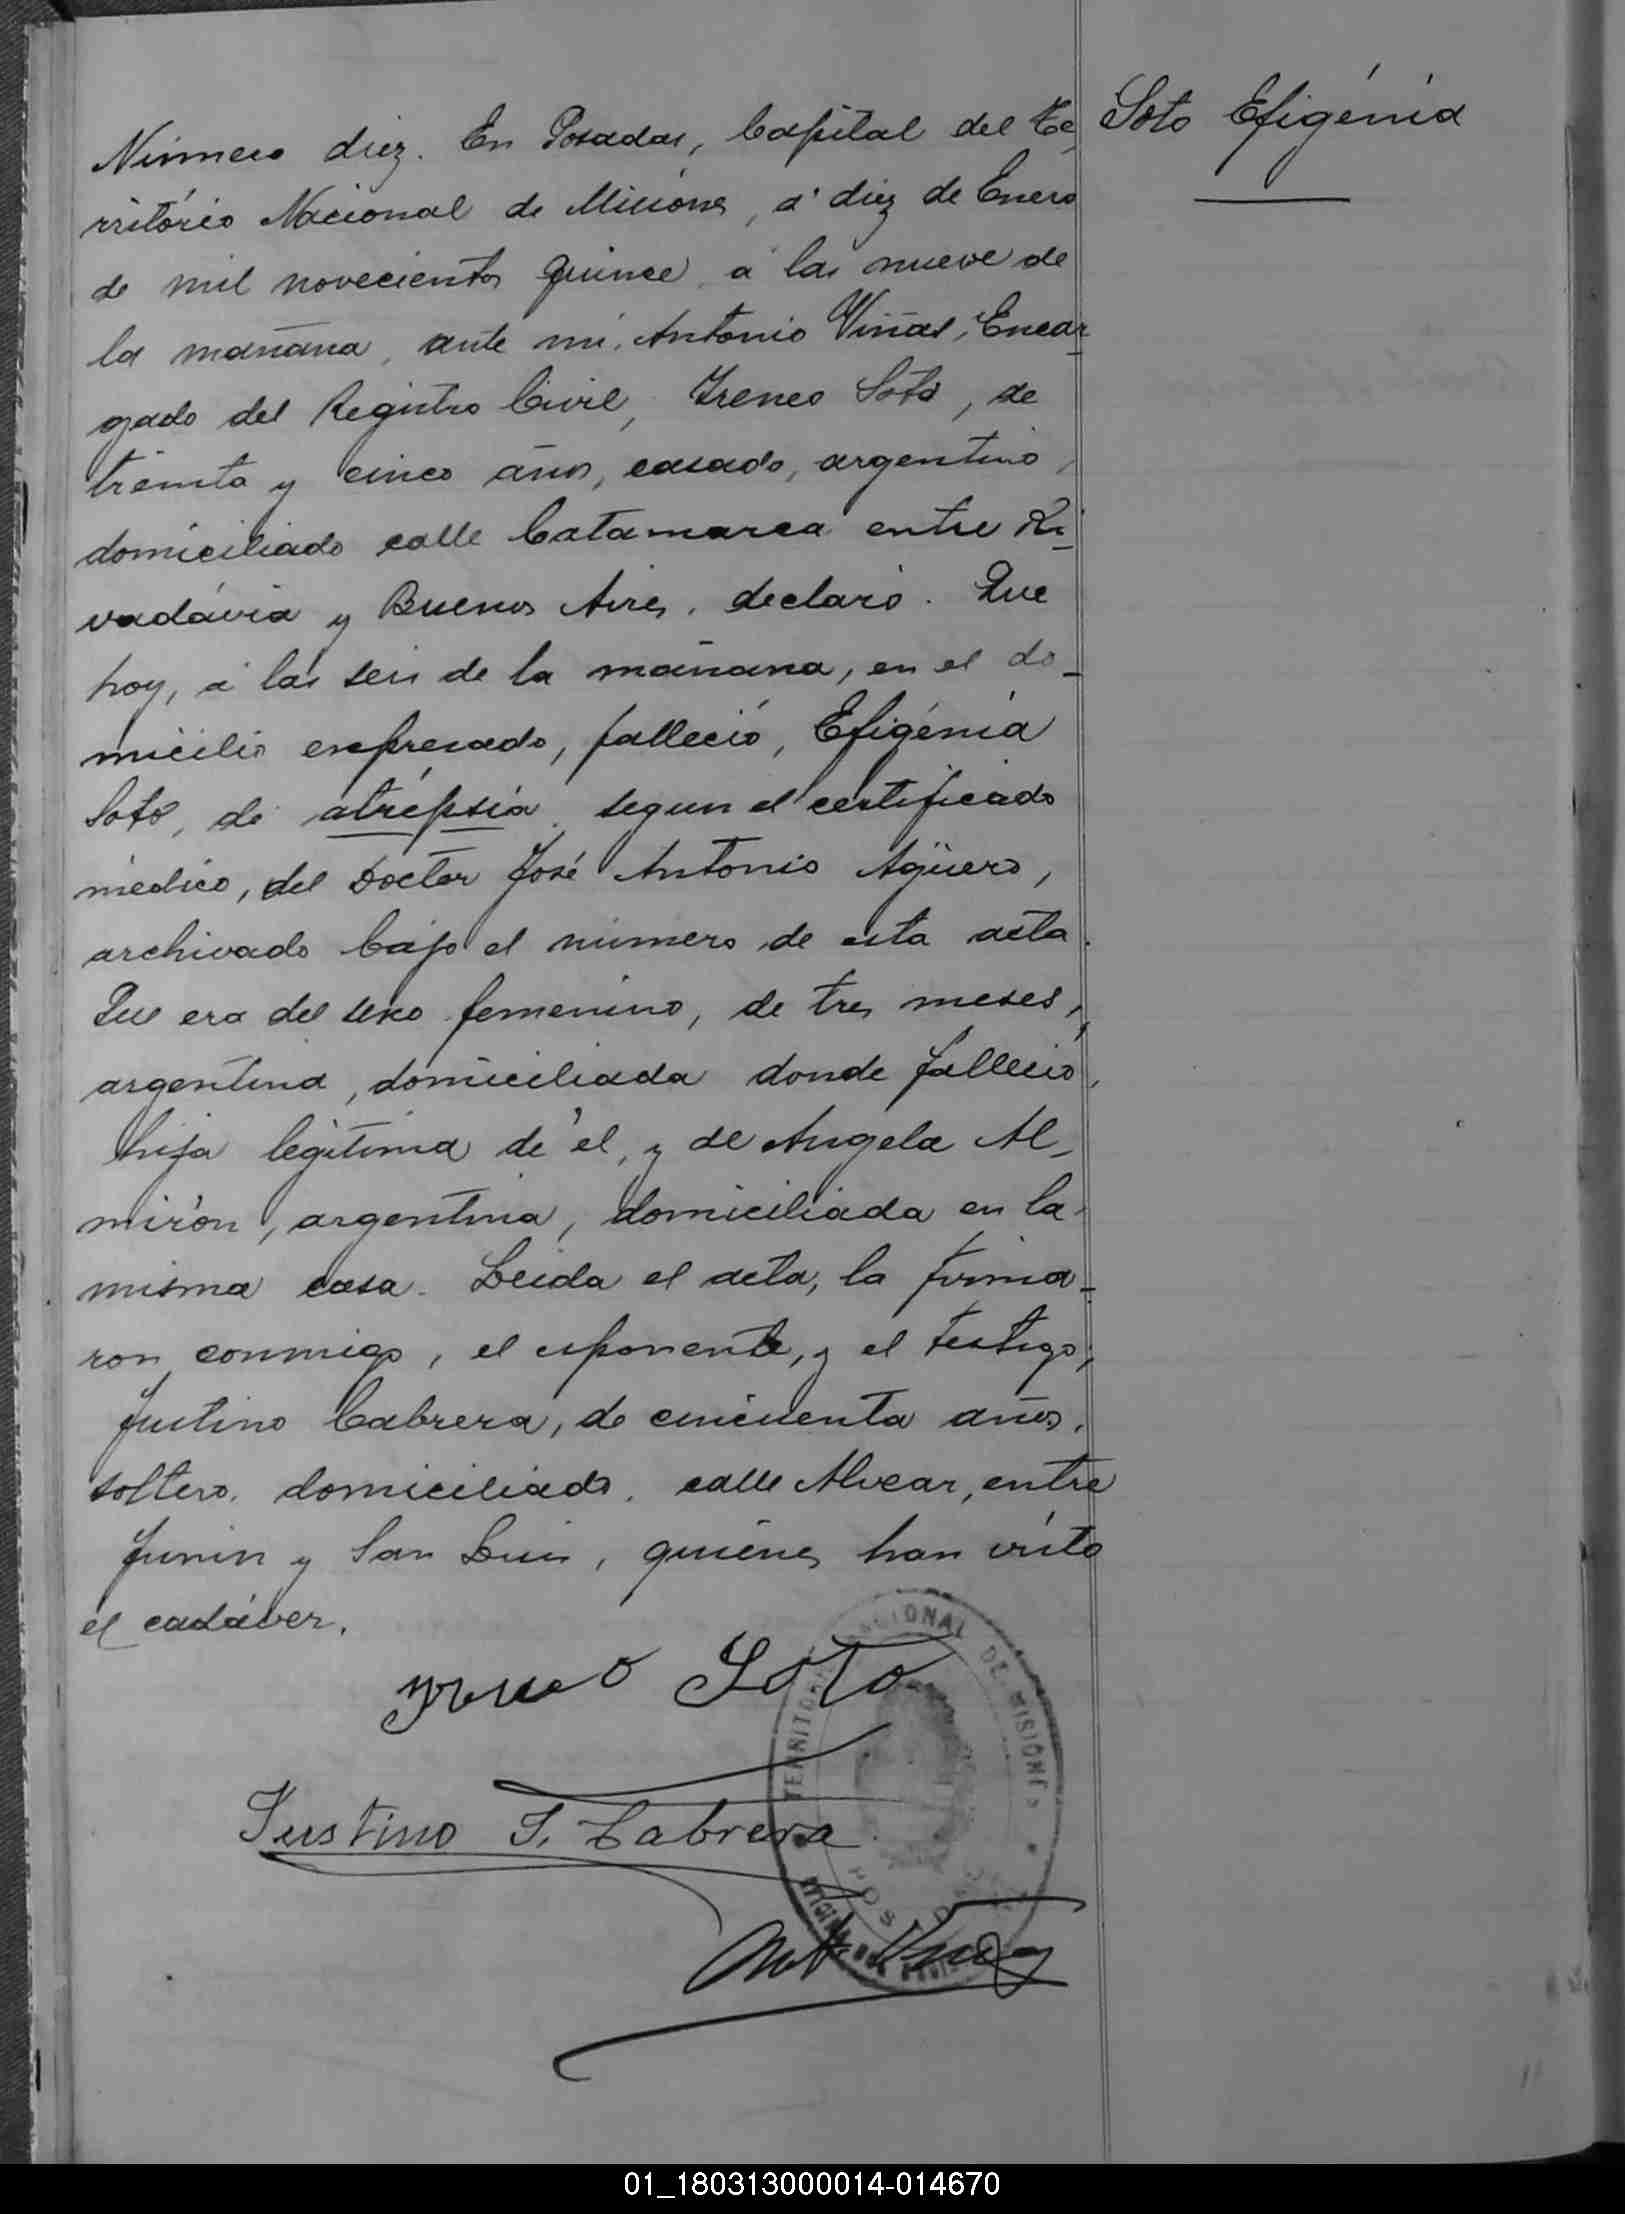 Soto Efigénia
Número diez. En Posadas, Capital del Te
rritório Nacional de Misiónes, á diez de Enero
de mil novecientos quince, a las nueve de
la mañana, ante mi, Antonio Viñas, Encar-
gado del Registro Civil, Ireneo Soto, de
treinta y cinco años, casado, argentino,
domiciliado calle Catamarca entre Ri-
vadávia y Buenos Aires, declaró. Que
hoy, á las seis de la mañana, en el do-
micilio expresado, falleció, Efigénia
Soto, de atrépsia, segun el certificado
médico, del Doctor José Antonio Agüero,
archivado bajo el número de esta acta.
Que era del sexo femenino, de tres meses,
argentina, domiciliada donde falleció,
hija legítima de él, y de Angela Al-
mirón, argentina, domiciliada en la
misma casa. Leida el acta, la firma-
ron conmigo, el esponente, y el testigo,
Justino Cabrera, de cincuenta años,
soltero, domiciliado, calle Alvear, entre
Junin y San Luis, quiénes han visto
el cadáver.
Ireneo Soto
Justino S. Cabrera
TERRITORIO NACIONAL DE MISIONES
POSADAS
Anto Viñas
01_180313000014-014670